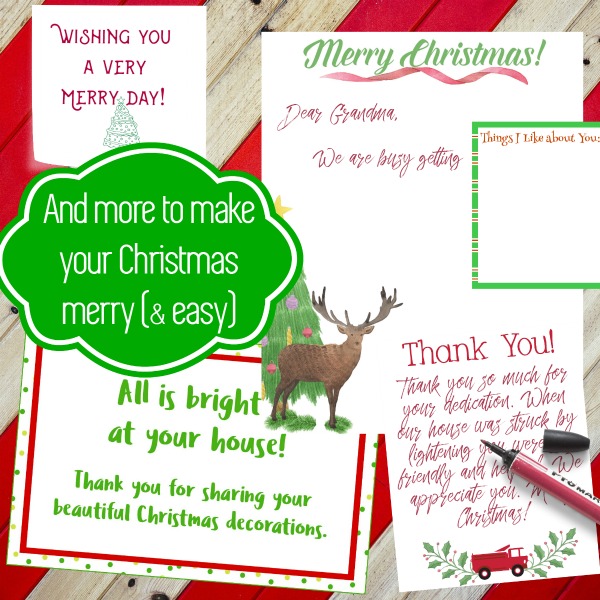 WISHING YOU
A VERY
MERRY DAY!
Merry Christmas!
Dear Grandma,
We are busy getting
Things I Like about You:
And more to make
your Christmas
merry (& easy)
All is bright
at your house!
Thank you for sharing your
beautiful Christmas decorations.
Thank You!
Thank you so much for
your dedication. When
our house was struck by
lightening you were
friendly and We
appreciate you.
Christmas!